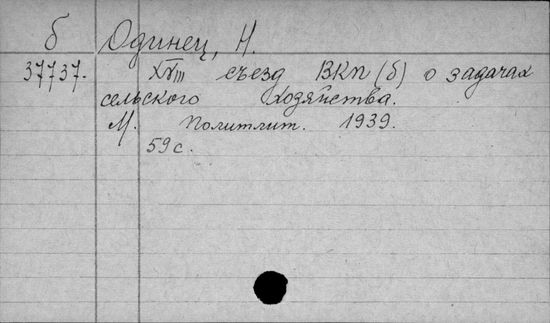 б Одинец, Н.
37737. XVIII съезд ВКП(б) о задачах
сельского хозяйства.
М. Политлит. 1939.
59 с.